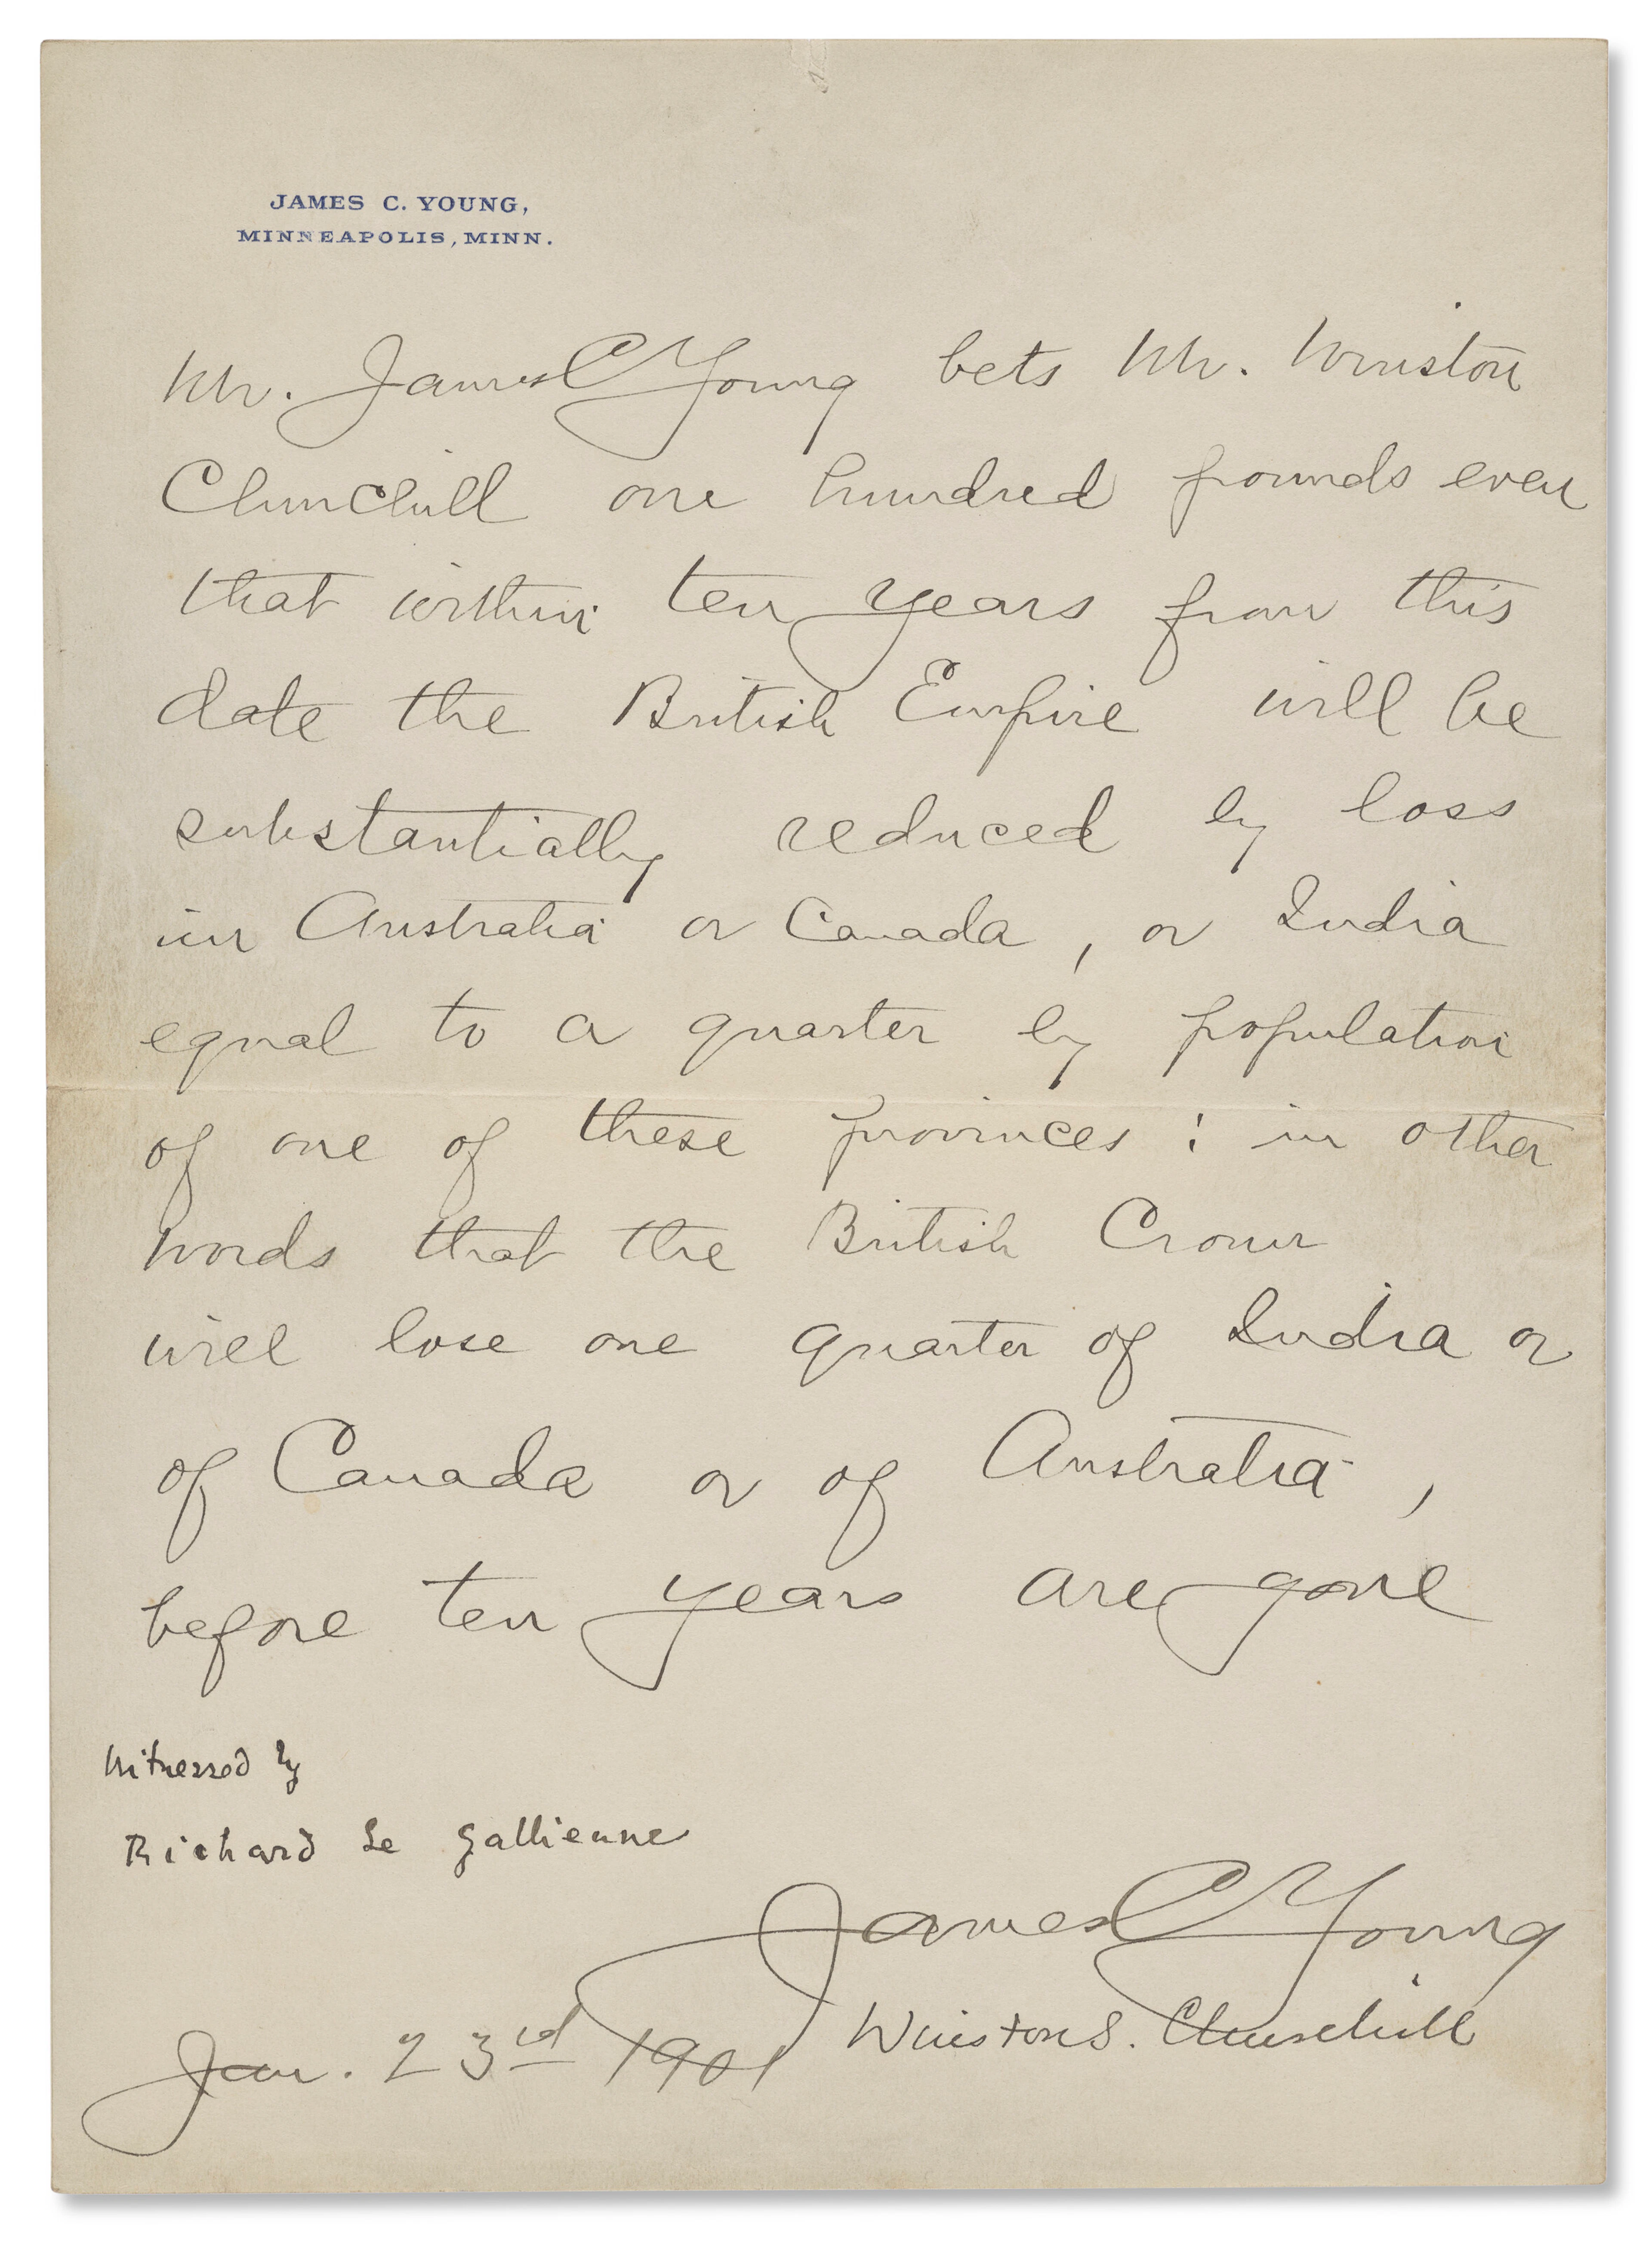 JAMES C. YOUNG,
MINNEAPOLIS, MINN.
Mr. James C Young bets Mr. Winston
Churchill one hundred pounds even
that within ten years from this
date the British Empire will be
substantially reduced by loss
in Australia or Canada, or India
equal to a quarter by population
of one of these provinces: in other
words that the British Crown
will lose one quarter of India or
of Canada or of Australia,
before ten years are gone
Witnessed by
Richard Le Gallienne
James C Young
Winston S. Churchill
Jan. 23rd 1901